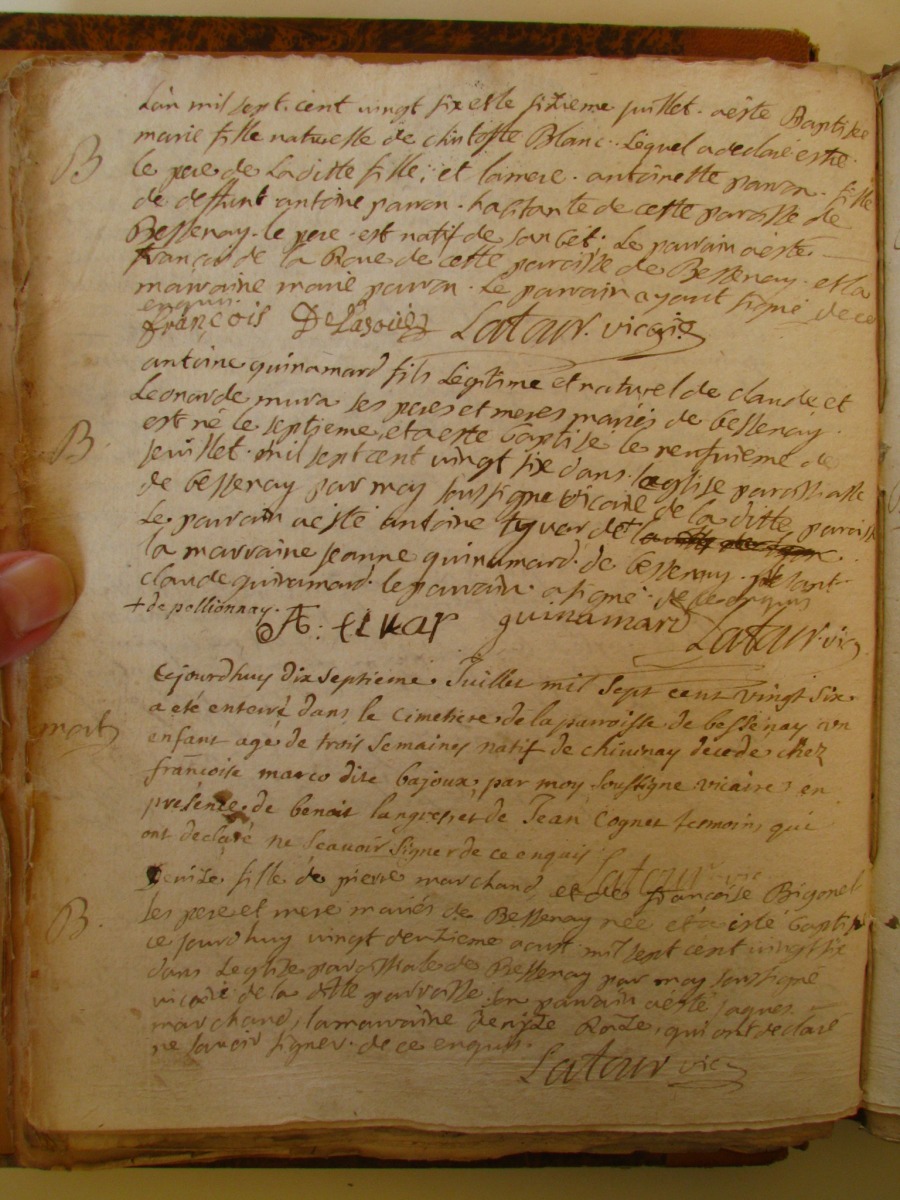 L'an mil sept cent vingt six et le sizieme juillet a este Baptisee
B
marie fille naturelle de christofle Blanc. Lequel a declaré estre
le pere de La ditte fille, et la mere antoinette parron fille
de deffunt antoine parron habitante de cette paroisse de
Bessenay. le pere est natif de Le parrain a este
françois de la Roue de cette paroisse de Bessenay et la
marraine marie parron. Le parrain ayant signé de ce
enquis.
françois Latour vicaire
antoine guinamard fils Légitime et naturel de claude et
Leonarde mura ses peres et meres mariés de bessenay
B.
est né le septieme, et a este baptisé le neufvieme de
juillet mil sept cent vingt six dans leglise paroissialle
de bessenay par moy soussigné vicaire de la ditte paroisse
Le parrain a esté antoine +
la marraine jeanne guinamard de bessenay
claude guinamard le parrain a signé de ce enquis
+ de pollionnay.
guinamard
Latour vic
cejourdhuy dix septieme Juillet mil sept cent vingt six
mort
a été enterré dans le cimetiere de la parroisse de bessenay un
enfant agé de trois semaines natif de décédé chez
françoise marco dite bajoux, par moy soussigne vicaire en
présence de benoit et de Jean Cognet temoins qui
ont declaré ne scavoir signer de ce enquis
Latour vic
Denize fille de pierre marchand et de françoise Bigonet
B.
ses pere et mere mariés de Bessenay née et a esté baptisé
ce jourdhuy vingt deuzieme aoust mil sept cent vingt six
dans Leglize paroissiale de Bessenay par moy soussigné
vicaire de la ditte parroisse son parrain a esté jaques
marchand, la marraine denize Roze, qui ont declaré
ne savoir signer de ce enquis.
Latour vic